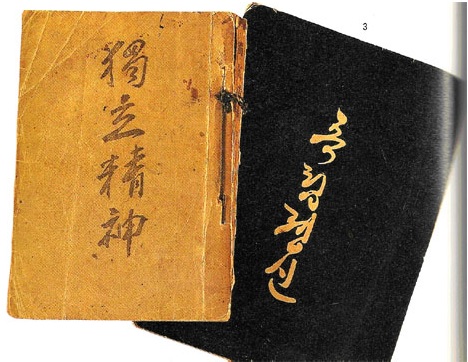 獨立精神
3
독립졍신